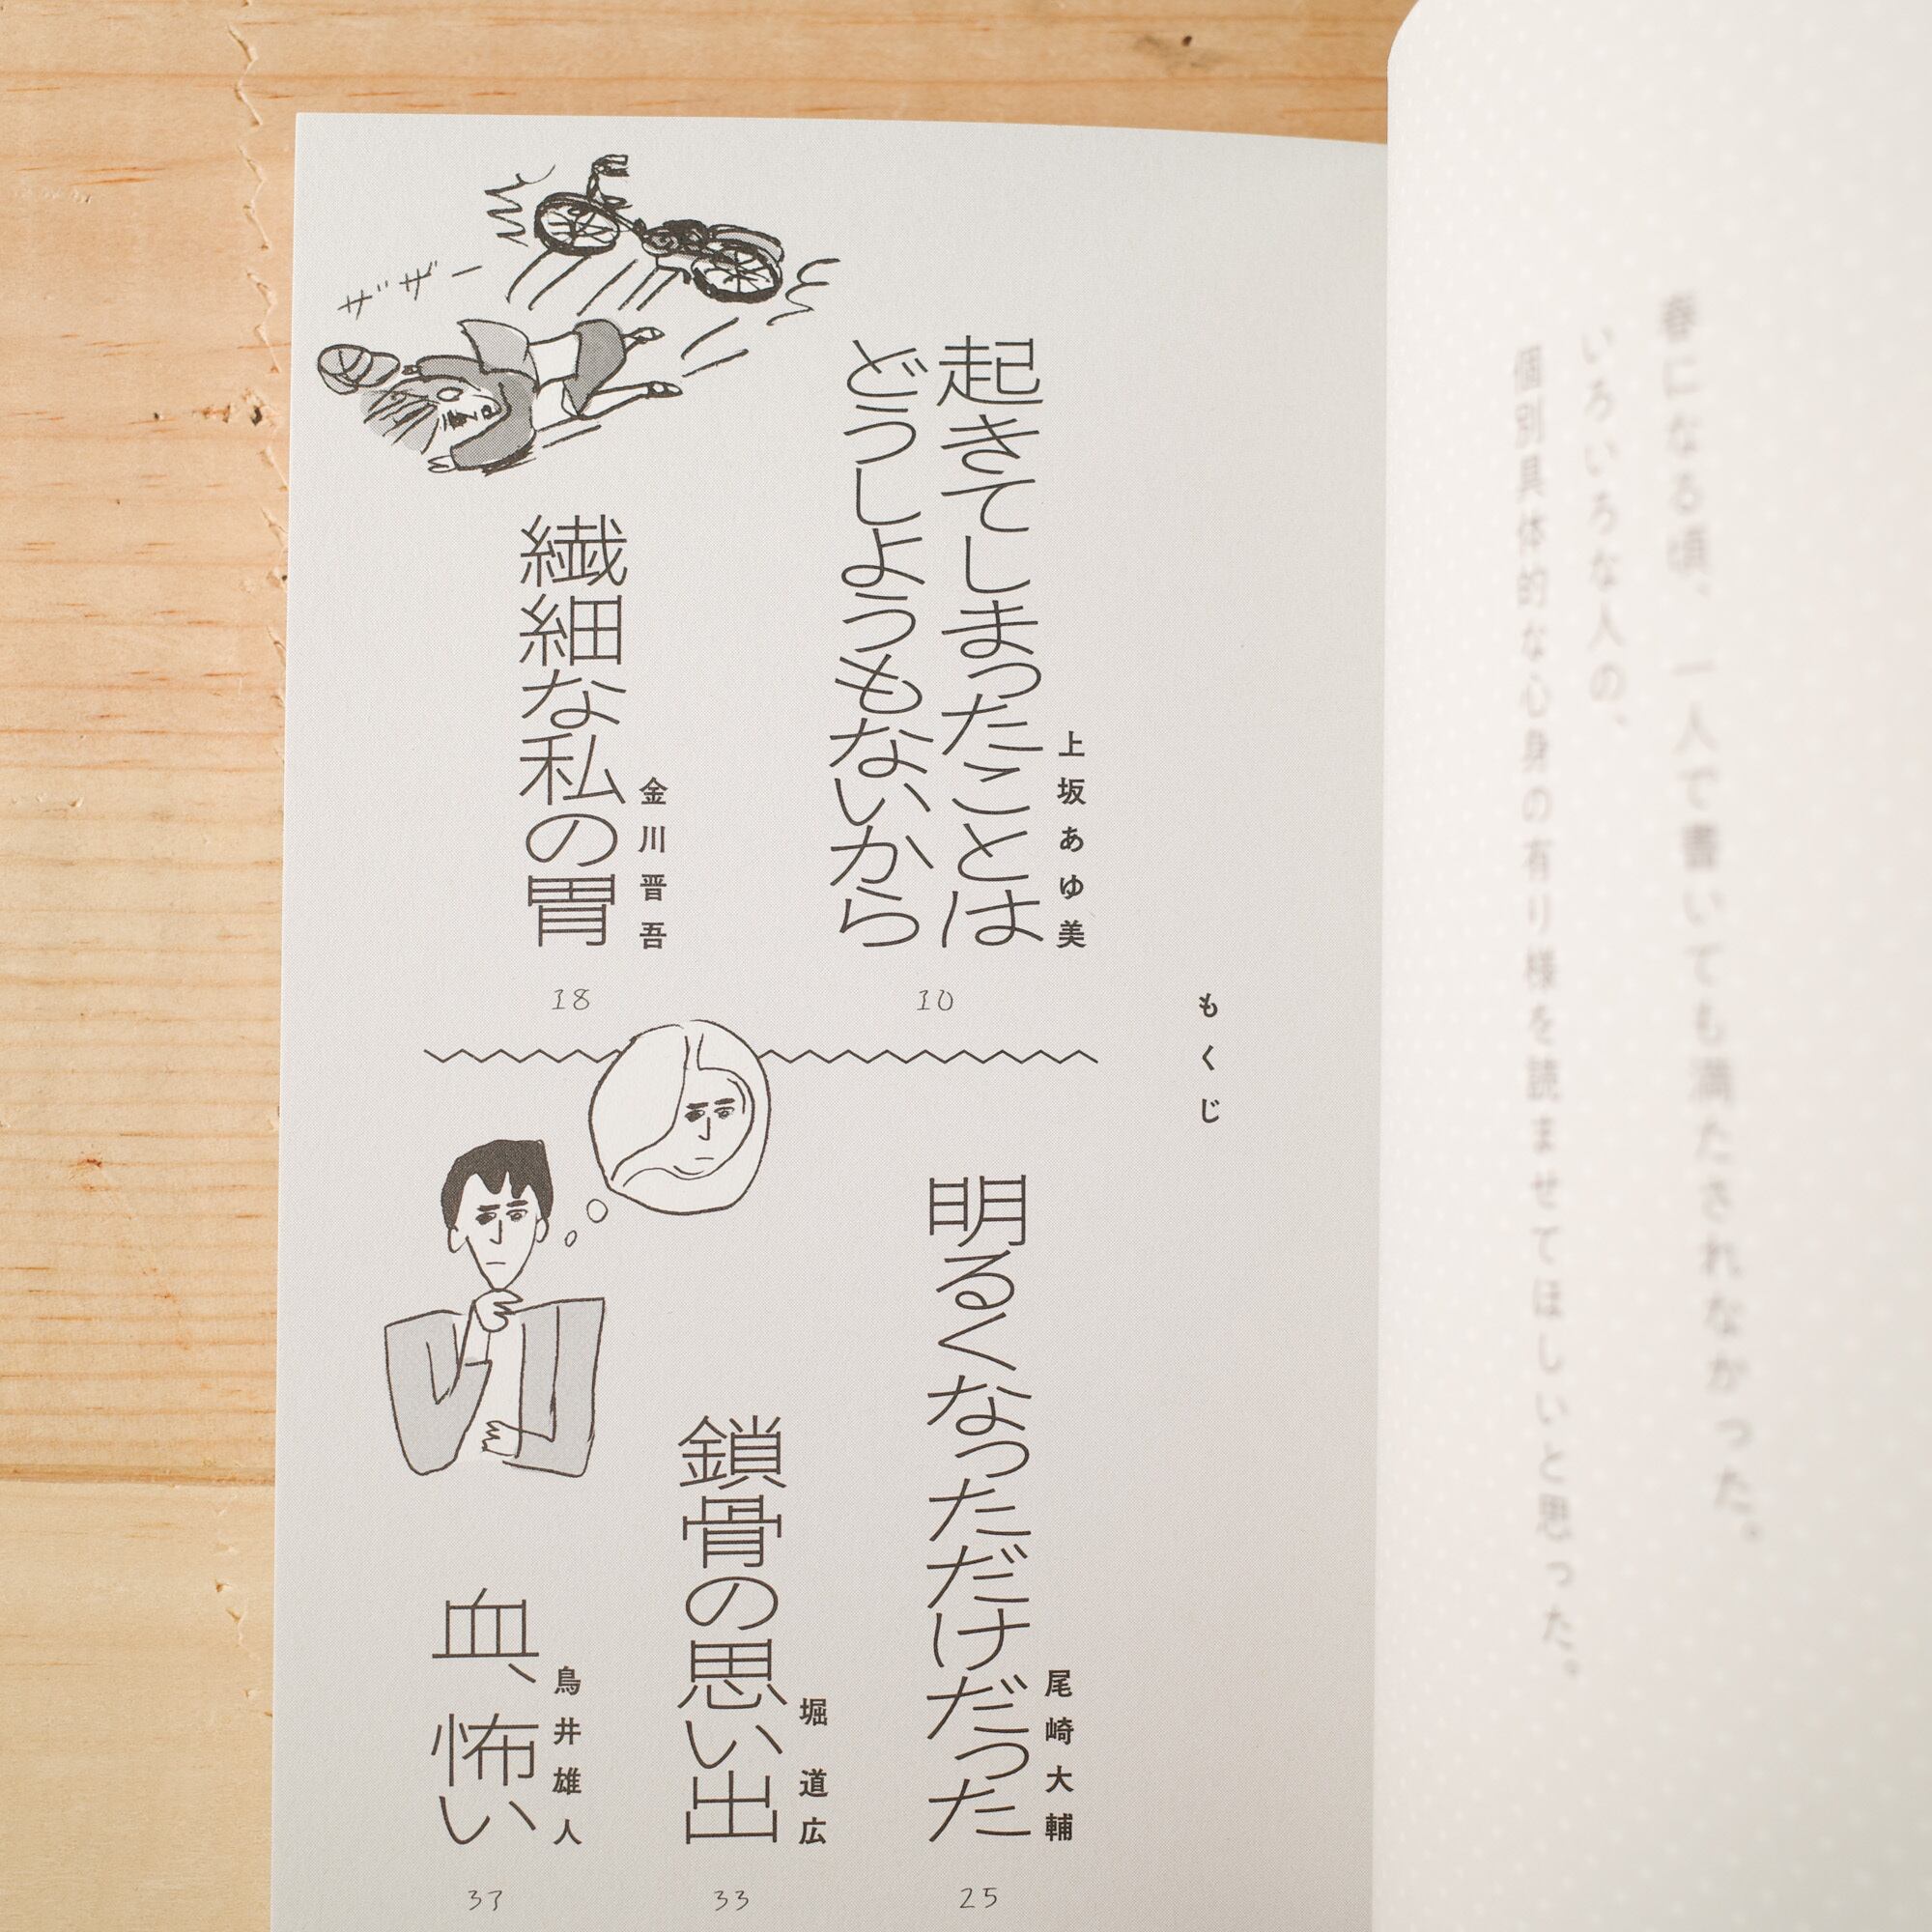 春になる頃、一人で書いても満たされなかった。
いろいろな人の、
個別具体的な心身の有り様を読ませてほしいと思った。
もくじ
上坂あゆ美
起きてしまったことは
どうしようもないから
10
金川晋吾
繊細な私の胃
18
ザザー
尾崎大輔
明るくなっただけだった
25
堀道広
鎖骨の思い出
33
鳥井雄人
血、怖い
37